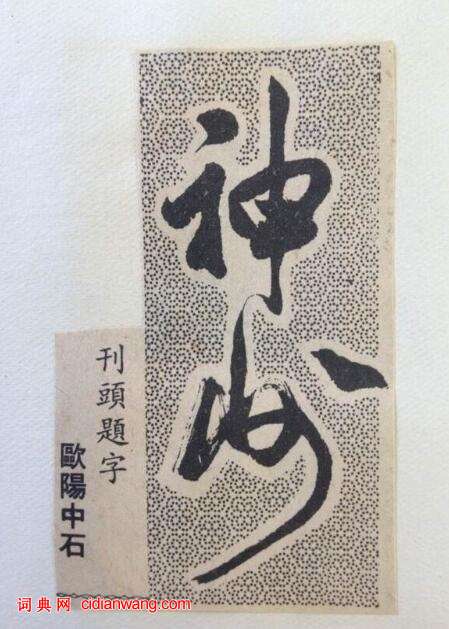 神妙
刊頭題字
歐陽中石
词典网 cidianwang.com